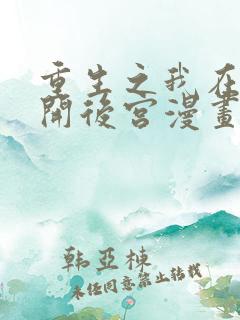 重生之我在
開後宮漫畫
韩亚栋
未经同意禁止转载